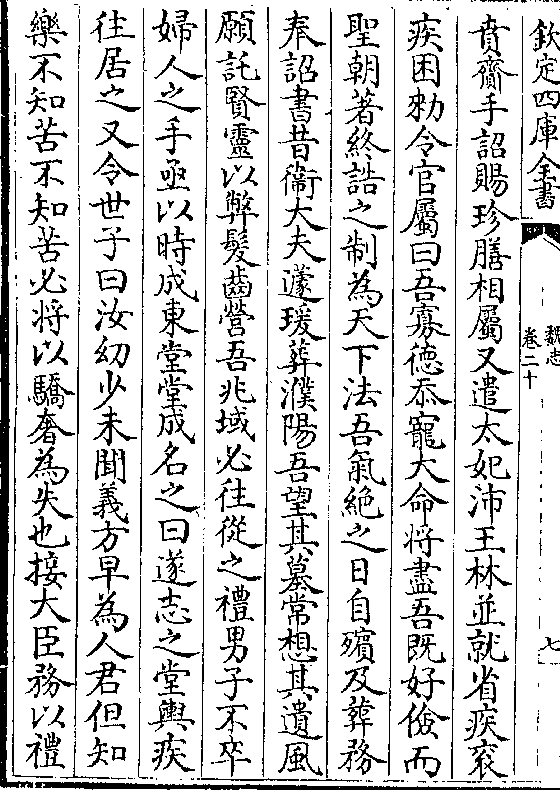 欽定四庫全書
魏志
卷二十
七
賁齎手詔賜珍膳相屬又遣太妃沛王林並就省疾衮
疾困勑令官屬曰吾寡德忝寵大命將盡吾既好儉而
聖朝著終誥之制為天下法吾氣絶之日自殯及葬務
奉詔書昔衞大夫蘧瑗葬濮陽吾望其墓常想其遺風
願託賢靈以弊髮齒營吾兆域必往從之禮男子不卒
婦人之手亟以時成東堂堂成名之曰遂志之堂輿疾
往居之又令世子曰汝幼少未聞義方早為人君但知
樂不知苦不知苦必將以驕奢為失也接大臣務以禮